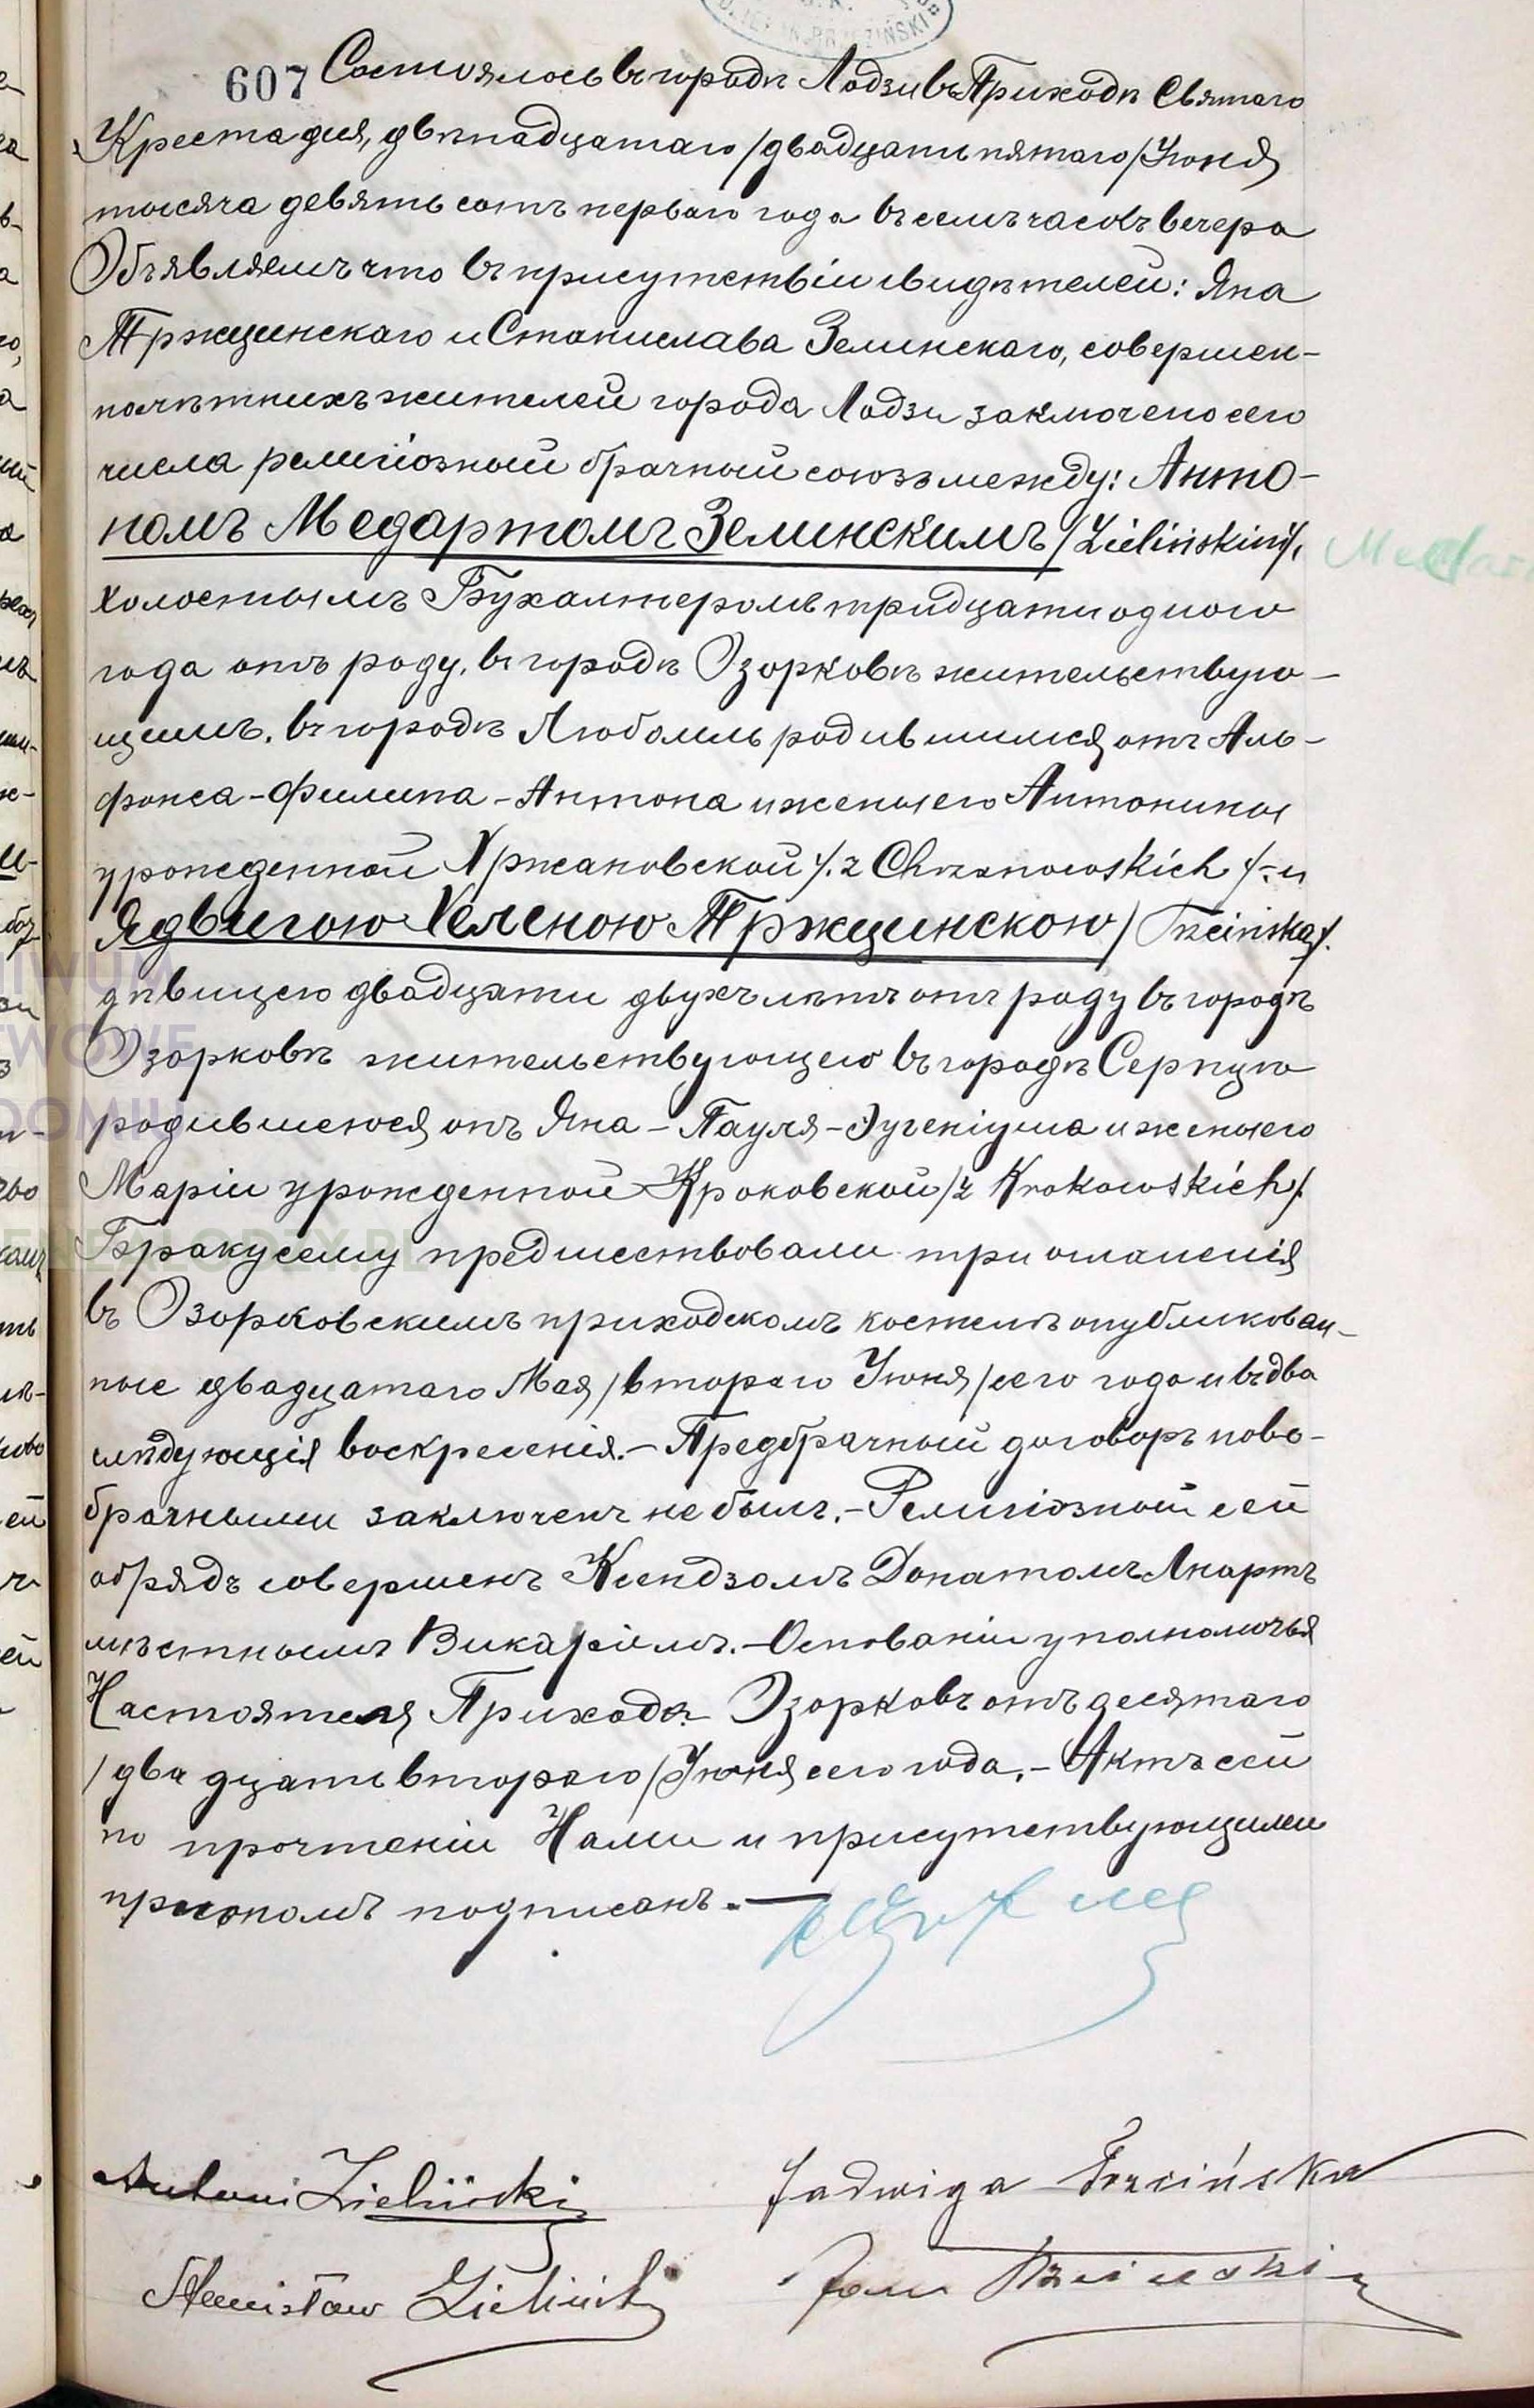 607 Состоялось въ городѣ Лодзи въ Приходѣ Святаго
Креста дня, двѣнадцатаго /двадцать пятаго/ Іюня
тысяча девятьсотъ перваго года въ семь часовъ вечера
Объявляемъ что въ присутствіи свидѣтелей: Яна
Тржцинскаго и Станислава Зелинскаго, совершен-
нолѣтнихъ жителей города Лодзи заключено сего
числа религіозный брачный союзъ между: Анто-
номъ Медартомъ Зелинскимъ /Zieliński/,
холостымъ Бухалтеромъ тридцати одного
года отъ роду, въ городѣ Озорковѣ жительствую-
щимъ, въ городѣ Любомль родившимся отъ Аль-
фонса-Филипа-Антона и жены его Антонины
урожденной Хржановской /:z Chrzanowskich/:-и
Ядвигою Хеленою Тржцинскою /Trzcińska/.
дѣвицею двадцати двухъ лѣтъ отъ роду въ городѣ
Озорковѣ жительствующею въ городѣ Серпцю
родившеюся отъ Яна-Пауля-Эугеніуша и жены его
Маріи урожденной Кроковской /z Krokowskich/.
Браку сему предшествовали три оглашенія
въ Озорковскимъ приходскомъ костелѣ опубликован-
ные двадцатаго Мая /втораго Іюня/ сего года и въ два
слѣдующія воскресенія.- Предбрачный договоръ ново-
брачными заключенъ не былъ.- Религіозный сей
обрядъ совершенъ Ксендзомъ Донатомъ Ликартъ
мѣстнымъ Викаріемъ.- Основаніи уполномочья
Настоятеля Прихода Озорковъ отъ десятаго
/двадцать втораго/ Іюня сего года.- Актъ сей
по прочтеніи Нами и присутствующими
при ономъ подписанъ.-
Antoni Zieliński
Jadwiga Trzcińska
Stanisław Zieliński
Jan Trzciński